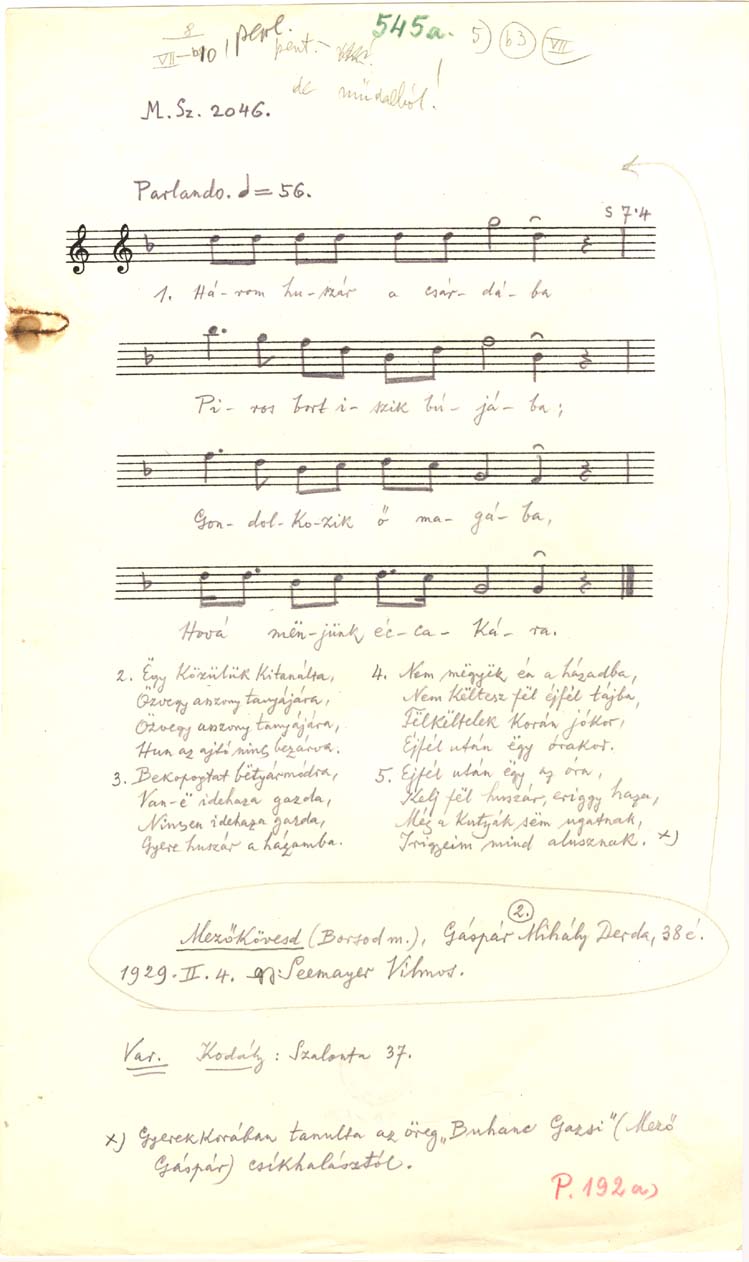 8
VII—b10 perl. 545a. 5) b3 VII
pent.-
de műdalból!
M. Sz. 2046.
Parlando. = 56.
s 7·4
1. Há-rom hu-szár a csár-dá-ba
Pi-ros bort i-szik bú-já-ba;
Gon-dol-ko-zik ő ma-gá-ba,
Hová mën-jünk éc-ca-ká-ra.
2. Ëgy közülük kitanálta,
Özvegy asszony tanyájára,
Özvegy asszony tanyájára,
Hun az ajtó nincs bezárva.
3. Bekopogtat bëtyármódra,
Van-ë idehaza gazda,
Nincsen idehaza gazda,
Gyere huszár a házamba.
4. Nem mëgyëk én a házadba,
Nem költesz fël éjfél tájba,
Fëlköltelek korán jókor,
Éjfél után ëgy órakor.
5. Éjfél után ëgy az óra,
Kelj fël huszár, eriggy haza,
Még a kutyák sëm ugatnak,
Irigyeim mind alusznak. x)
2.
Mezőkövesd (Borsod m.), Gáspár Mihály Derda, 38 é.
1929. II. 4. gy: Seemayer Vilmos.
Var. Kodály: Szalonta 37.
x) Gyerekkorában tanulta az öreg „Buhanc Gazsi" (Mező
Gáspár) csíkhalásztól.
P. 192a)